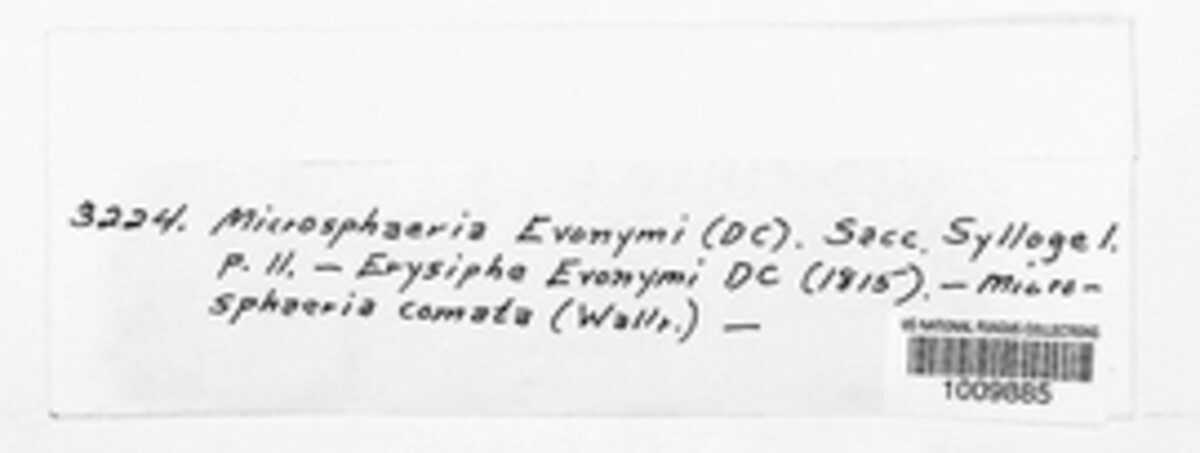 3224. Microsphaeria Evonymi (DC). Sacc. Sylloge I.
p. 11. — Erysiphe Evonymi DC (1815). — Micro-
sphaeria comata (Wallr.) —
US NATIONAL FUNGUS COLLECTIONS
1009885